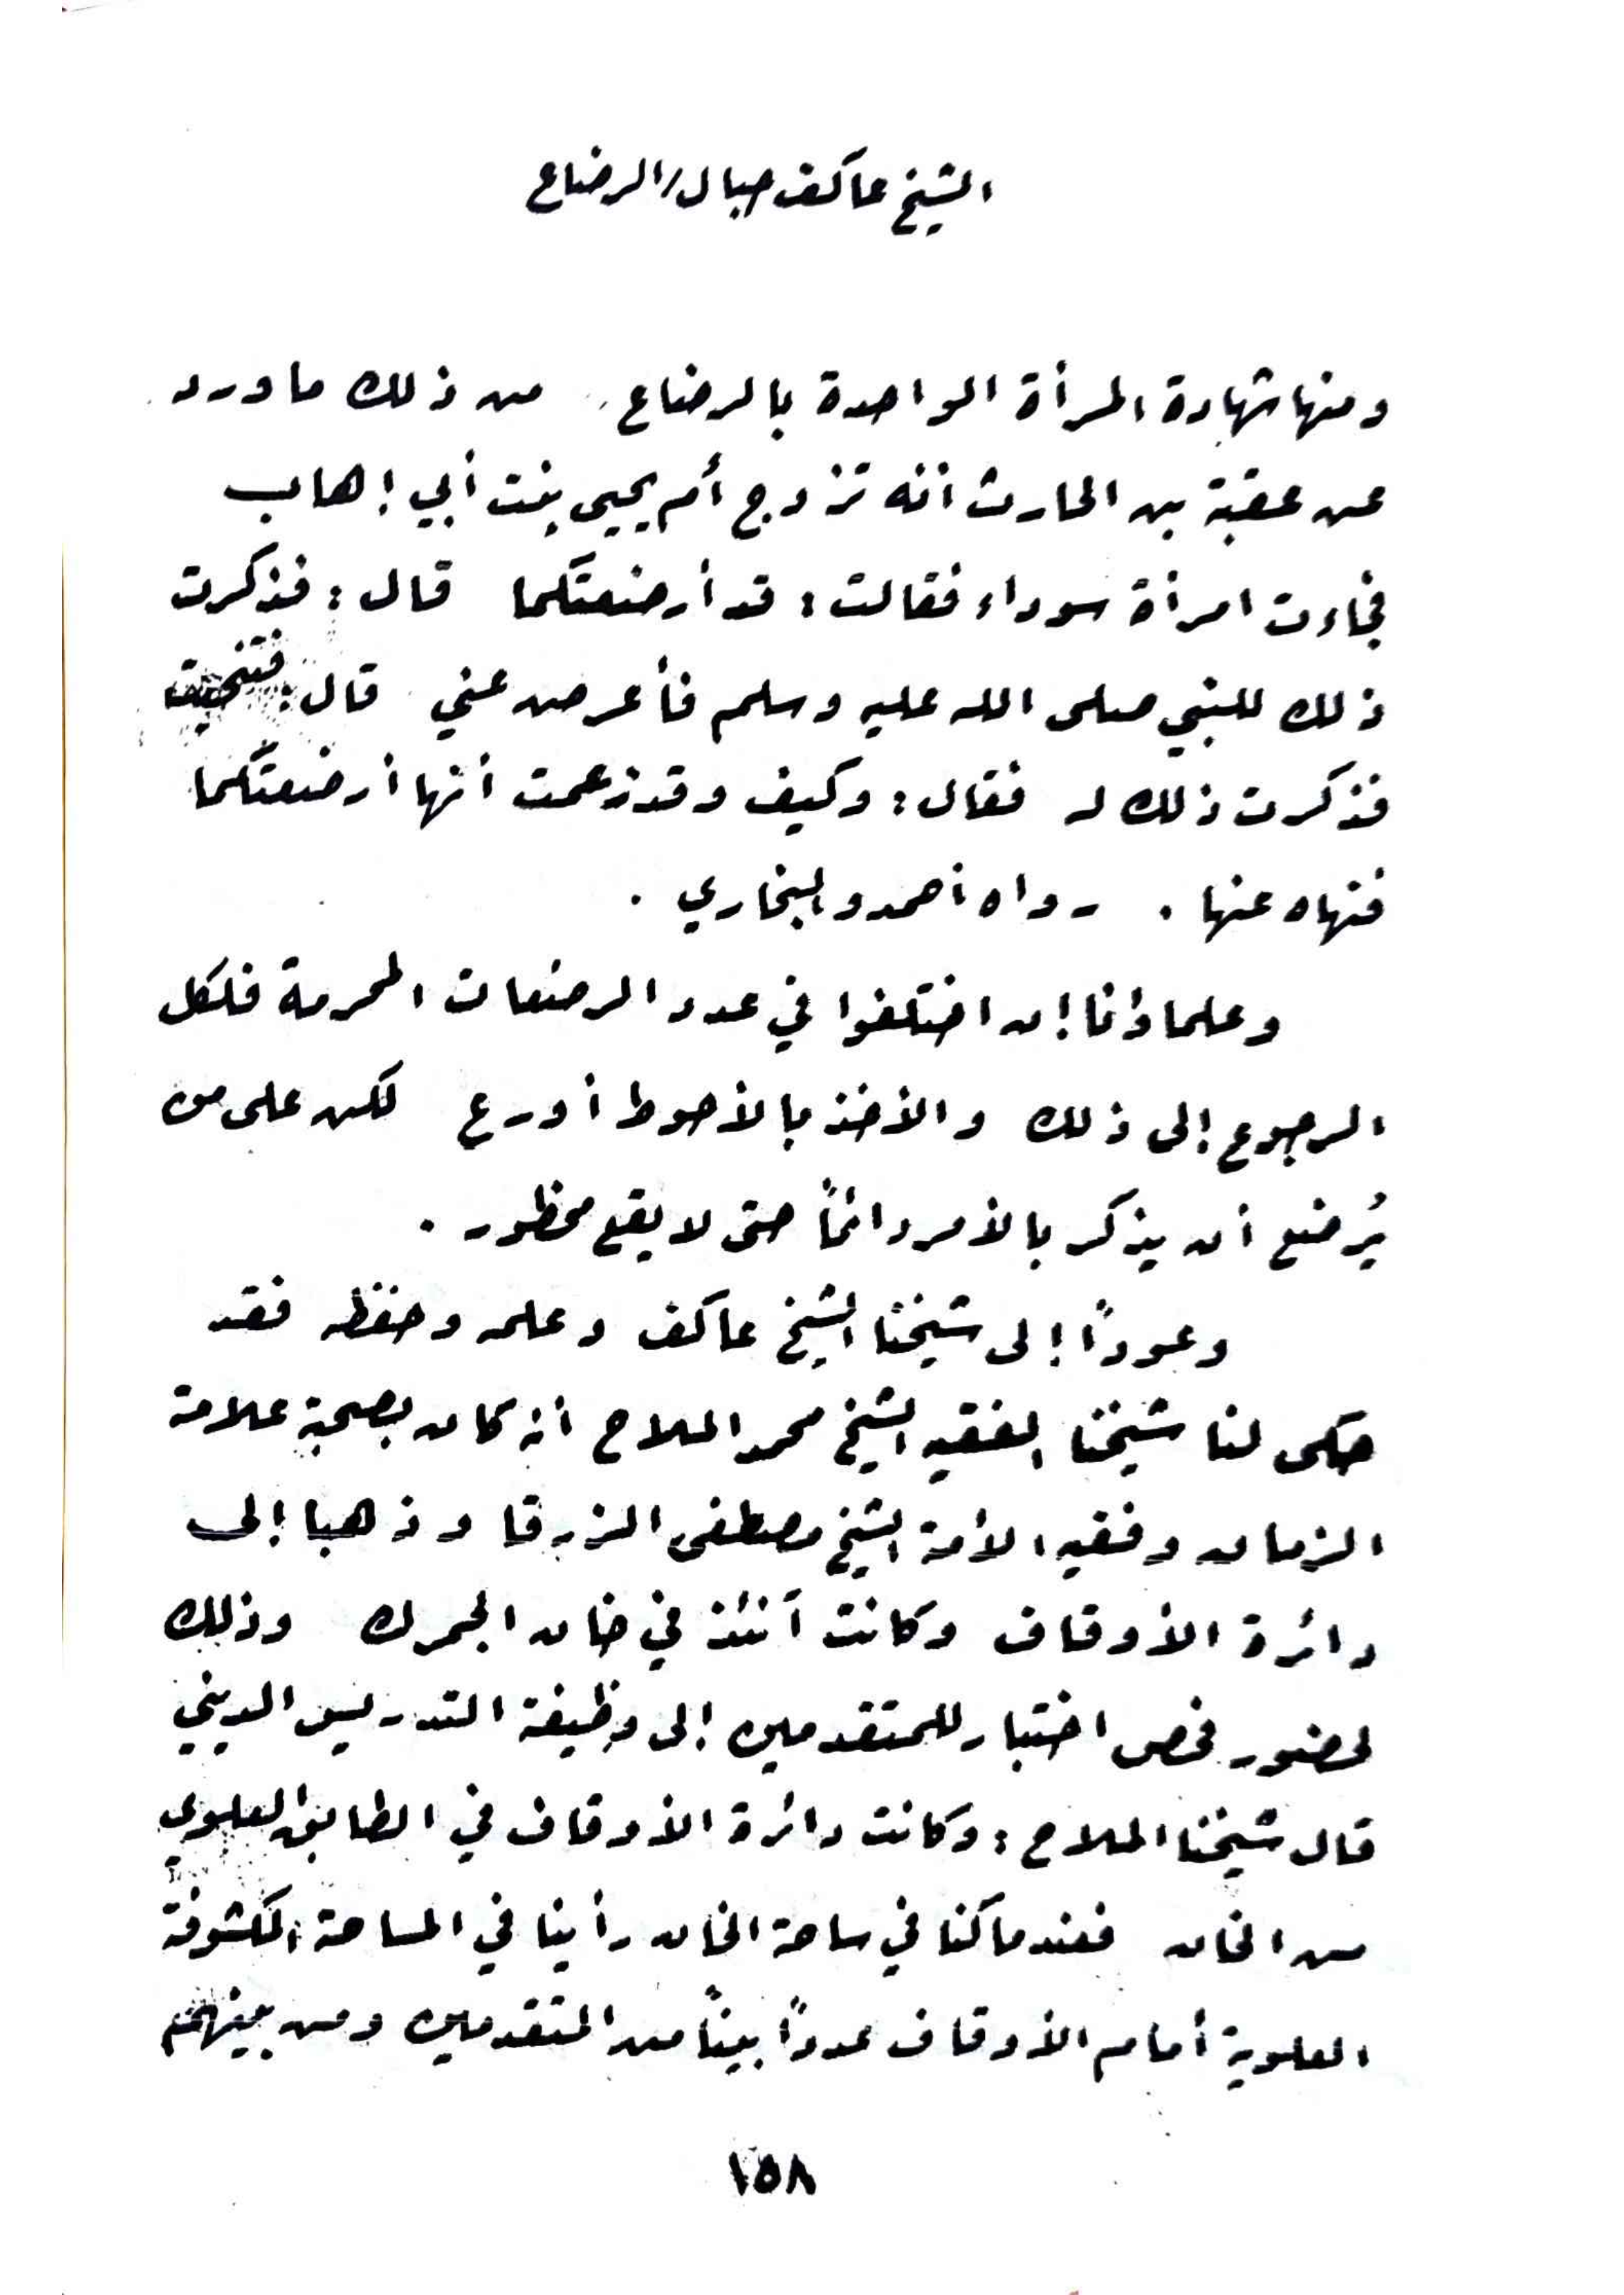 الشيخ عاكف حبال/الرضاع
ومنها شهادة المرأة الواحدة بالرضاع، من ذلك ما ورد
عن عقبة بن الحارث أنه تزوج أم يحيى بنت أبي إهاب
فجاءت امرأة سوداء فقالت: قد أرضعتكما قال: فذكرت
ذلك للنبي صلى الله عليه وسلم فأعرض عني قال: فتنحيت
فذكرت ذلك له فقال: وكيف وقد زعمت أنها أرضعتكما
فنهاه عنها. رواه أحمد والبخاري.
وعلماؤنا إن اختلفوا في عدد الرضعات المحرمة فلكل
الرجوع إلى ذلك والأخذ بالأحوط أورع لكن على من
يُرضع أن يذكر بالأمر دائماً حتى لا يقع محظور.
وعوداً إلى شيخنا الشيخ عاكف وعلمه وحفظه فقد
حكى لنا شيخنا الفقيه الشيخ محمد الملاح أنه كان بصحبة علامة
الزمان وفقيه الأمة الشيخ مصطفى الزرقا وذهبا إلى
دائرة الأوقاف وكانت آنئذ في خان الجمرك وذلك
لحضور فحص اختبار للمتقدمين إلى وظيفة التدريس الديني
قال شيخنا الملاح: وكانت دائرة الأوقاف في الطابق العلوي
من الخان فعندما كنا في ساحة الخان رأينا في المساحة المكشوفة
العلوية أمام الأوقاف عدداً بيناً من المتقدمين ومن بينهم
١٥٨